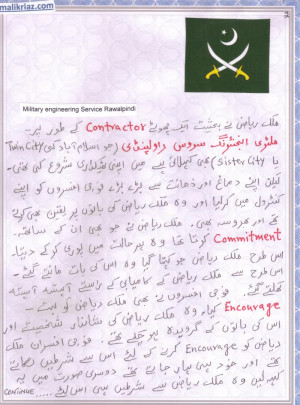 malikriaz.com
Military engineering Service Rawalpindi
ملک ریاض نے بحیثیت ایک چھوٹے Contractor کے طور پر
ملٹری انجینئرنگ سروس راولپنڈی (جو اسلام آباد کی Twin City
یا Sister City) بھی کہلاتی ہے میں اپنی ٹھیکیداری شروع کی تھی۔
لیکن اپنے دماغ اور ذہانت سے بڑے بڑے فوجی افسروں کو اپنے
کنٹرول میں کر لیا اور وہ ملک ریاض کی باتوں پر یقین بھی کرتے
تھے اور بھروسہ بھی۔ ملک ریاض نے جو بھی ان کے ساتھ
Commitment کرتا تھا وہ ہر حالت میں پوری کر کے دیتا۔
اس طرح ملک ریاض جو کہتا گیا وہ اس کی بات مانتے گئے۔
اس طرح سے ملک ریاض کے کامیابی کے راستے آہستہ آہستہ
کھلتے گئے۔ فوجی افسروں نے بھی ملک ریاض کو بہت
Encourage کیا۔ وہ ملک ریاض کی شاندار شخصیت اور
اس کی باتوں کے گرویدہ ہو چکے تھے۔ فوجی افسران ملک
ریاض کو Encourage کرنے کے لئے اس سے شرطیں لگاتے
تھے اور خود ہی ہار جاتے تھے دوسری صورت میں یہ
کہہ لیں وہ ملک ریاض سے شرطیں ہی اس لئے ..... CONTINUE